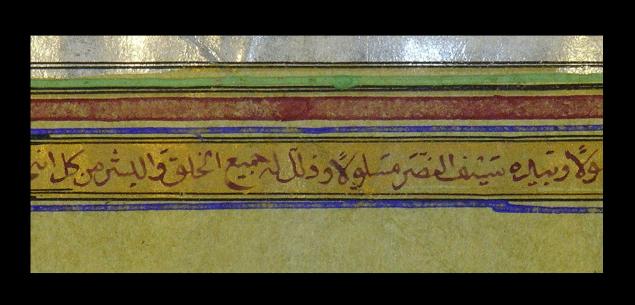 ولا وبيده سيف النصر مسلولاً وذلل له جميع الخلق والبشر من كل